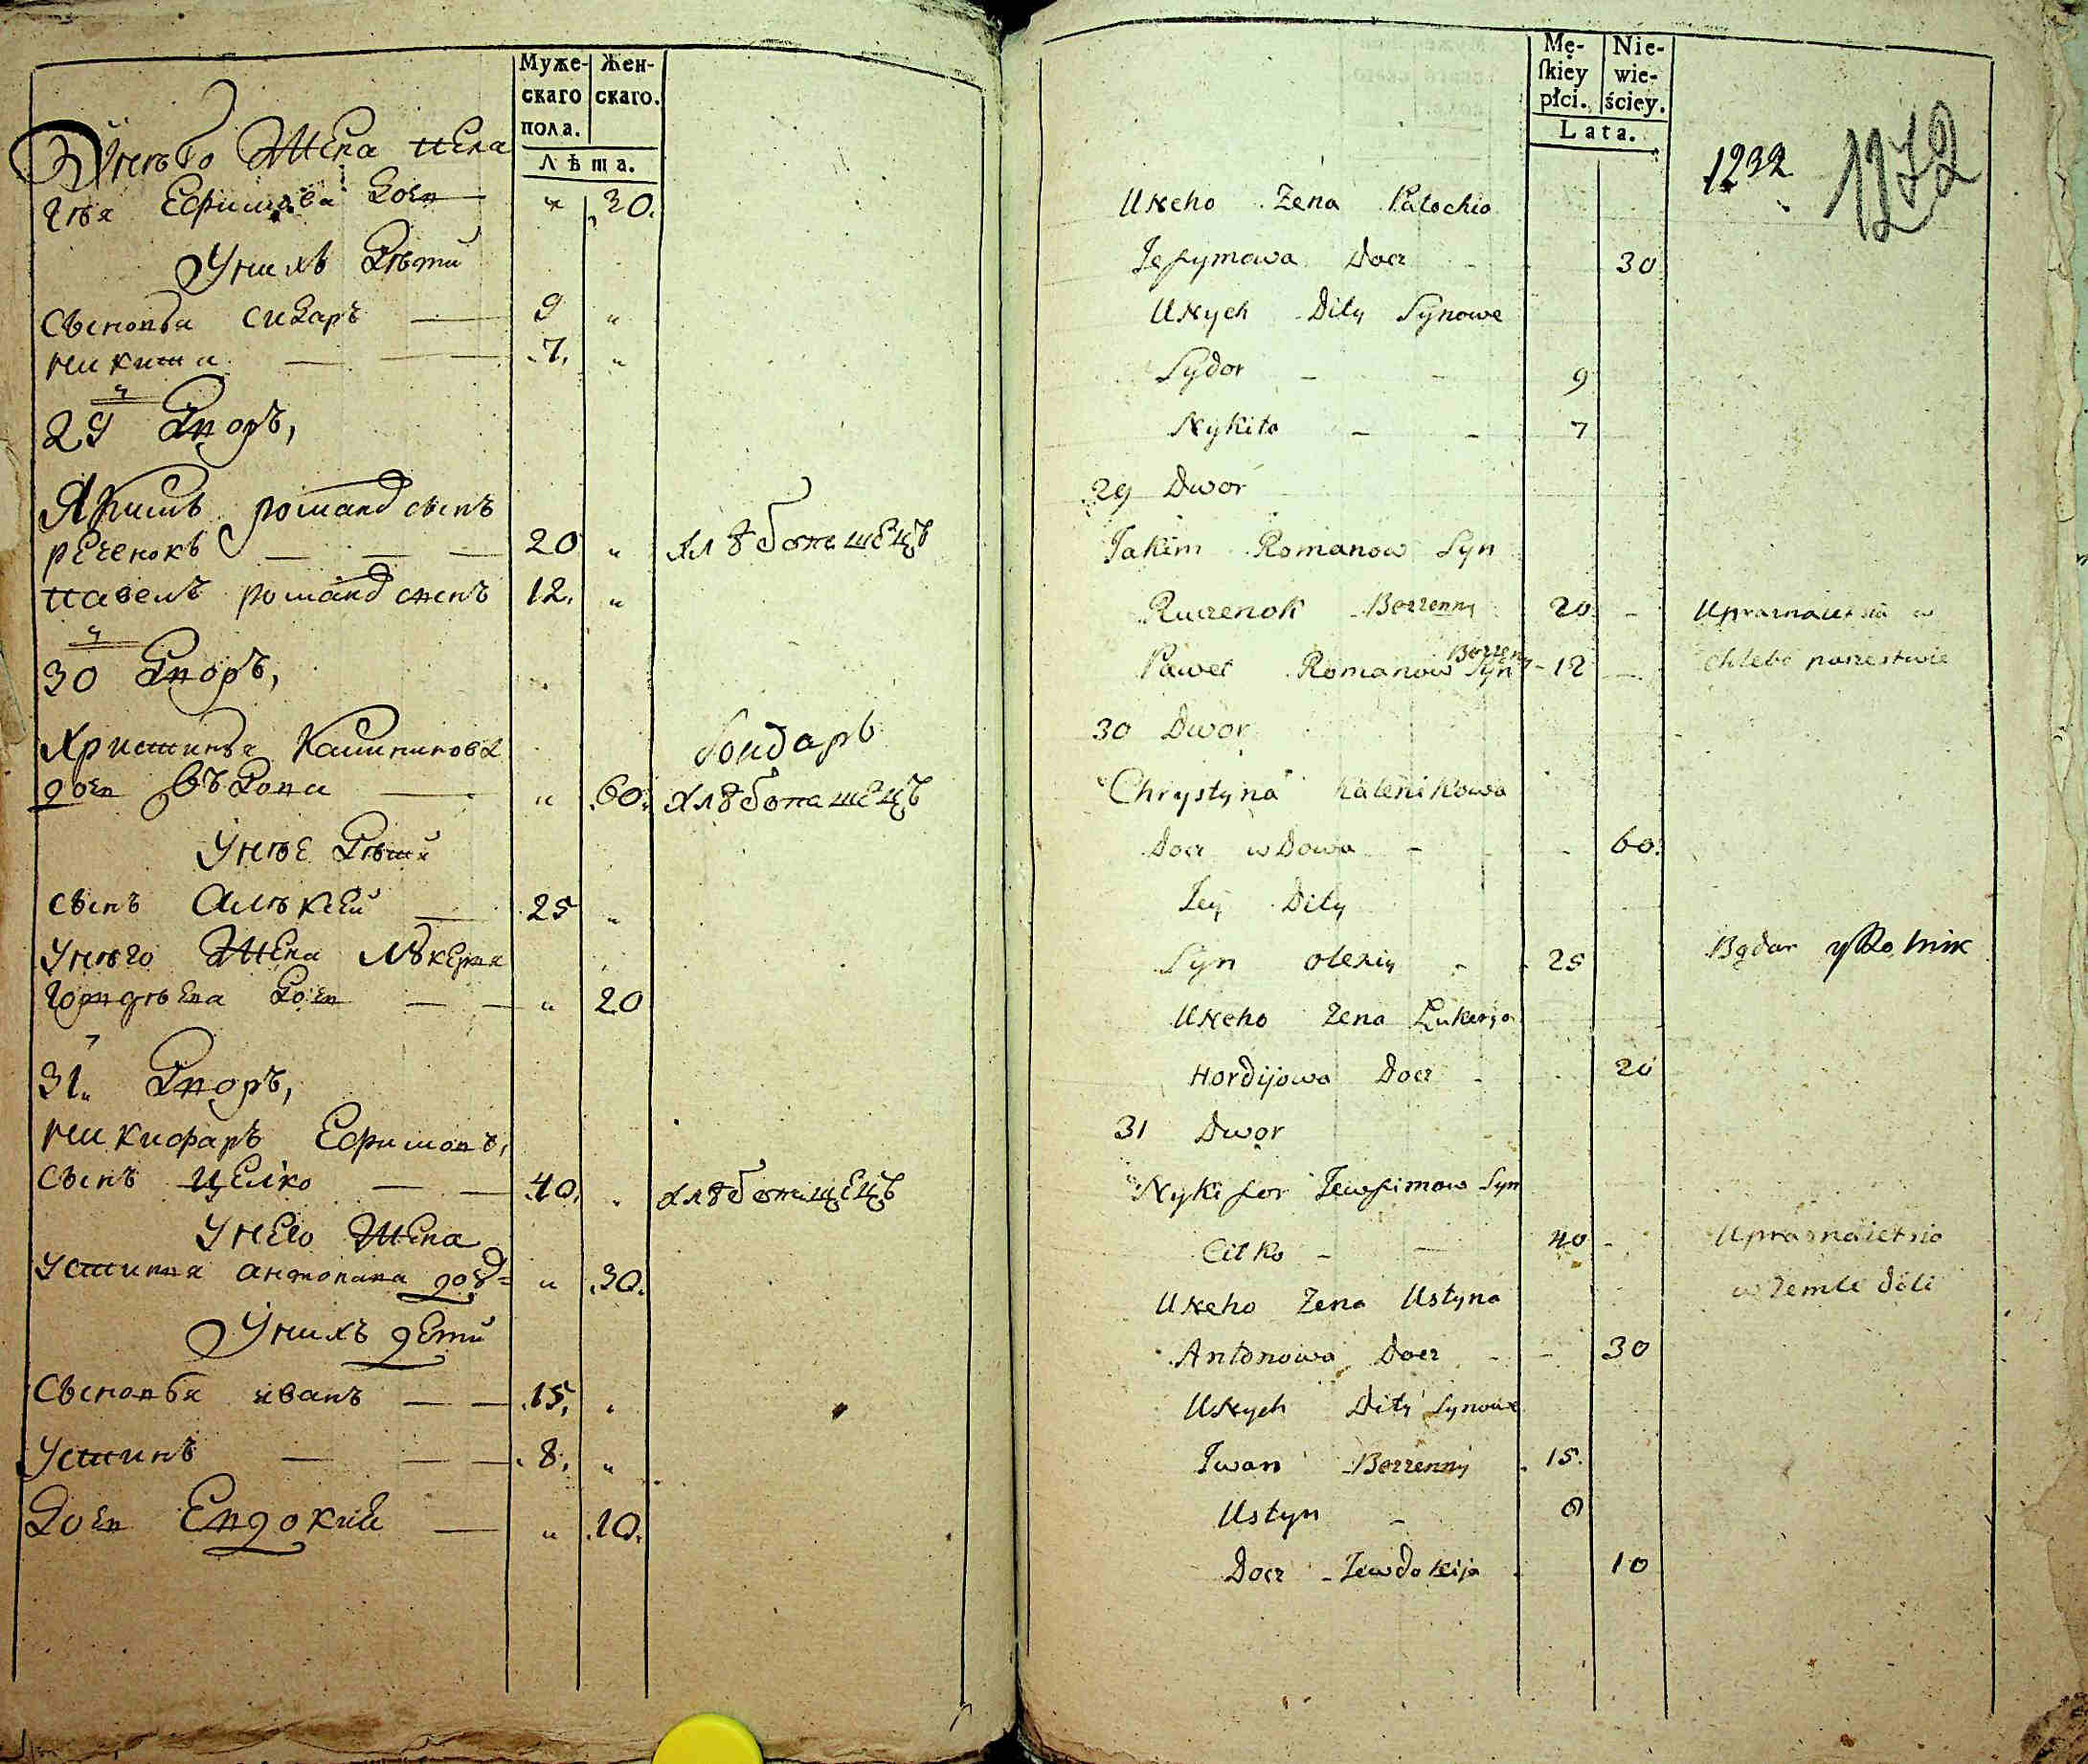 Муже-
скаго
пола.
Жен-
скаго.
Лѣта.
Унѣго Жена пела
гѣя Ефимова Доч 30.
Унихъ Дѣти
Сыновья сидаръ 9 "
никита 7. "
29 Дворъ,
Якимъ романов сынъ
реченокъ 20 " хлѣбопашецъ
павелъ романов сынъ 12. "
30 Дворъ,
Христинья Калиникова Бондарь
доч вѣдова " 60. хлѣбопашецъ
Унѣе Дѣти
сынъ Алѣксей 25 "
Унѣго Жена Лѣкерия
гордѣева Доч " 20
31. Дворъ,
никифаръ Ефимовъ,
сынъ целко 40. " хлѣбопашецъ
Унего Жена
Устиния антонава доч " 30.
Унихъ дети
Сыновья иванъ 15. "
Устинъ 8. "
Доч Евдокий " 10.
Mę-
skiey
płci.
Nie-
wie-
ściey.
Lata.
1232 1272
Uneho Zena Palochio
Jefymowa Docz 30
Unych Dity Synowe
Sydor 9
Nykita 7
29 Dwor
Jakim Romanow Syn
Ruczenok Bezzenny 20 Upraznaietsia w
Paweł Romanow Syn Bezzenny 12 Chlebo paszestwie
30 Dwor
Chrystyna Kalenikowa
Docz wDowa 60.
Jey Dity
Syn olexiy 25 Bądar
Uneho Zena Łukerja
Hordijowa Docz 20
31 Dwor
Nykifor Jewfimow Syn
Cilko 40 Upraznaietsia
Uneho Zena Ustyna w Zemle Deli
Antonowa Docz 30
Unych Dity Synowe
Iwan Bezzenny 15.
Ustyn 8
Docz Jewdokija 10